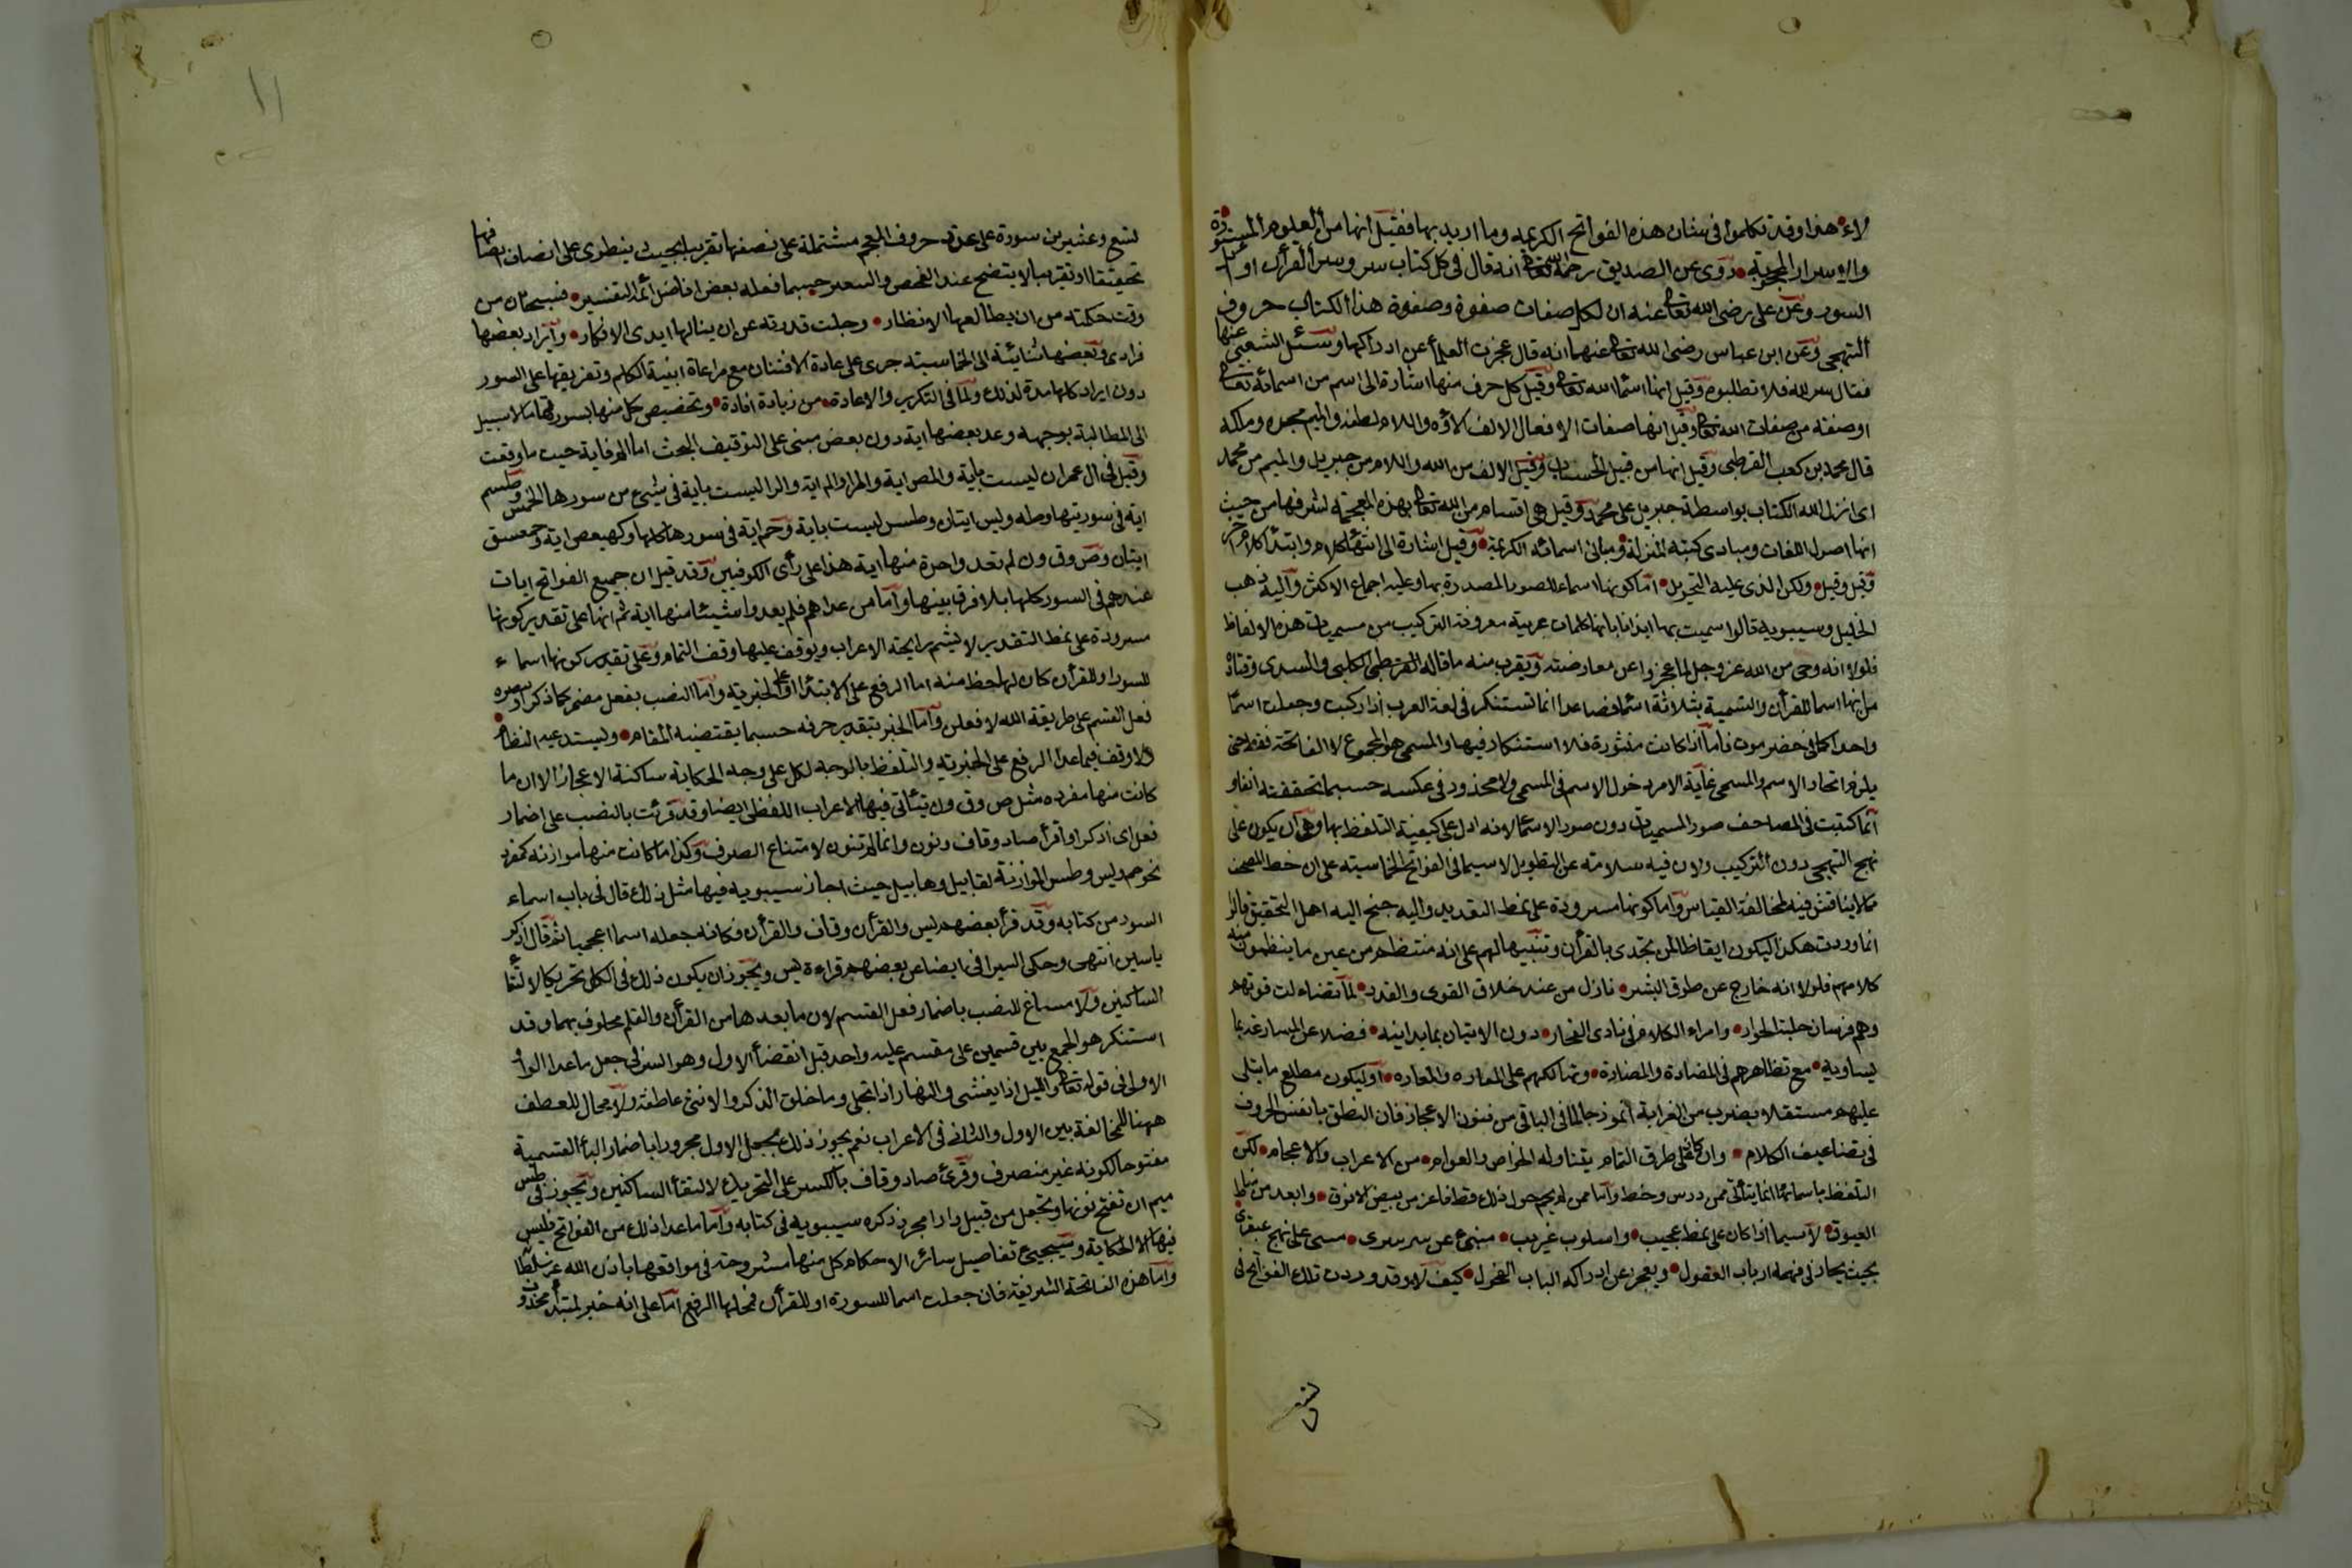 لاء هذا وقد تكلموا في شان هذه الفواتح الكريمه وما اريد بها فقيل انها من العلوم المستورة
والاسرار المحجوبة روى عن الصديق رحمه الله تعا انه قال في كل كتاب سر وسر القرأن اوائل
السور وعن على رضى الله تعا عنه ان لكل كتاب صفوة وصفوة هذا الكتاب حروف
التهجى وعن ابن عباس رضى الله تعا عنهما انه قال عجزت العلمأ عن ادراكها وسئل الشعبى عنها
فقال سر الله فلا تطلبوه وقيل انها اسمأ الله تعا وقيل كل حرف منها اشارة الى اسم من اسمائه تعا
او صفة من صفات الله تعا وقيل انها صفات الافعال الالف الاؤه واللام لطفه والميم مجده وملكه
قاله محمد بن كعب القرظى وقيل انها من قبيل الحساب وقيل الالف من الله واللام من جبريل والميم من محمد
اى انزل الله الكتاب بواسطة جبريل على محمد وقيل هى اقسام من الله تعا بهذه المعجمة لشرفها من حيث
انها اصول اللغات ومبادى كتبه المنزلة ومبانى اسمائه الكريمة وقيل اشارة الى انتهأ كلام وابتدأ كلام اخر
وقيل وقيل ولكن الذى عليه التعويل اما كونها اسماء للصور المصدرة بها وعليه اجماع الاكثر واليه ذهب
الخليل وسيبويه قالوا سميت بها ايذانا بانها كلمات عربية معروفة التركيب من مسميات هذه الالفاظ
فلولا انه وحى من الله عز وجل لما عجزوا عن معارضته ويقرب منه ما قاله القرطبى الكلبى والسدى وقتادة
من انها اسما للقرأن والتسمية بثلاثة اسمأ فصاعدا انما تستنكر في لغة العرب اذا ركبت وجعلت اسمًا
واحدا كما في حضرموت فاما اذا كانت منثورة فلا استنكار فيها والمسمى هو المجموع لا الفاتحة فقط حتى
يلزم اتحاد الاسم والمسمى غاية الامر دخول الاسم في المسمى ولا محذور في عكسه حسبما تحققته انفا و
انما كتبت في المصاحف صور المسميات دون صور الاسما لانه ادل على كيفية التلفظ بها وهى ان يكون على
نهج التهجى دون التركيب ولان فيه سلامة عن التطويل لا سيما في الفواتح الخماسية على ان خط المصحف
مما لا يناقش فيه لمخالفة القياس واما كونها مسرودة على نمط التعديد واليه جنح اليه اهل التحقيق قالوا
انما وردت هكذا ليكون ايقاظا لمن تحدى بالقرأن وتنبيها لهم على انه منتظم من عين ما ينظمون منه
كلامهم فلولا انه خارج عن طوق البشر نازل من عند خلاق القوى والقدر لما تضاءلت قوتهم
وهم فرسان حلبة الحوار وامراء الكلام في نادى الفخار دون الاتيان بما يدانيه فضلا عن المعارضة بما
يساويه مع تظاهرهم في المضادة والمضارة وتهالكهم على المعازه والمعاره او ليكون مطلع ما يتلى
عليهم مستقلا بضرب من الغرابة انموذجا لما في الباقى من فنون الاعجاز فان النطق بانفس الحروف
في تضاعيف الكلام وان كان على طرق التمام يتناوله الخواص والعوام من الاعراب والاعجام لكن
التلفظ باسمائها انما يتأتى ممن درس وخط واما ممن لم يحم حول ذلك قط فاعز من بيض الانوق وابعد من مناط
العيوق لا سيما اذا كان على نمط عجيب واسلوب غريب منبئ عن سر سرى مبنى على نهج عبقرى
بحيث يحار في فهمه ارباب العقول ويعجز عن ادراكه الباب الفحول كيف لا وقد وردت تلك الفواتح في
تسع
١١
تسع وعشرين سورة على عدد حروف المعجم مشتملة على نصفها تقريبا بحيث ينطوى على انصاف اصنافها
تحقيقا او تقريبا كما يتضح عند الفحص والسبر حسبما فعله بعض افاضل ائمة التفسير فسبحان من
دقت حكمته من ان يطالعها الانظار وجلت قدرته عن ان ينالها ايدى الافكار وايراد بعضها
فرادى وبعضها ثنائية الى الخماسية جرى على عادة الافتنان مع مراعاة ابنية الكلم وتفريقها على السور
دون ايراد كلها مرة لذلك ولما في التكرير والاعادة من زيادة افادة وتخصيص كل منها بسورتها مما لا سبيل
الى المطالبة بوجهه وعد بعضها اية دون بعض مبنى على التوقيف البحت اما الم فاية حيث ما وقعت
وقيل في ال عمران ليست باية والمص اية والمر والم اية والر ليست باية في شيئ من سورها الخمس وطسم
اية في سورتيها وطه ويس ايتان وطس ليست باية وحم اية في سورها كلها وكهيعص اية وحم عسق
ايتان وص وق ون لم تعد واحدة منها اية هذا على رأى الكوفيين وقد قيل ان جميع الفواتح ايات
عندهم في السور كلها بلا فرق بينها واما من عداهم فلم يعدوا شيئا منها اية ثم انها على تقدير كونها
مسرودة على نمط التعديد لا يشم رايحة الاعراب ويوقف عليها وقف التمام وعلى تقدير كونها اسماء
للسور او للقرأن كان لها حظ منه اما الرفع على الابتدا او على الخبرية واما النصب بفعل مضمر كاذكر او
فعل القسم على طريقة الله لافعلن واما الجر بتقدير حرفه حسبما يقتضيه المقام ويستدعيه النظام
ولا وقف فيما عدا الرفع على الخبرية والتلفظ بالوجه لكل على وجه الحكاية ساكنة الاعجاز الا ان ما
كانت منها مفرده مثل ص وق ون يتأتى فيها الاعراب اللفظى ايضا وقد قرئت بالنصب على اضمار
فعل اى اذكر او اقرأ صاد وقاف ونون وانما لم تنون لامتناع الصرف وكذا ما كانت منها موازنة لمفرد
نحو حم ويس وطس الموازنة لقابيل وهابيل حيث اجاز سيبويه فيها مثل ذلك قال في باب اسماء
السور من كتابه وقد قرأ بعضهم يس والقرأن وقاف والقرأن فكانه جعله اسما اعجميا ثم قال اذكر
ياسين انتهى وحكى السيرافى ايضا عن بعضهم قراءة يس ويجوز ان يكون ذلك في الكل تحريكا لالتقأ
الساكنين ولا مساغ للنصب باضمار فعل القسم لان ما بعدها من القرأن والقلم محلوف بهما وقد
استنكر هو الجمع بين قسمين على مقسم عليه واحد قبل انقضأ الاول وهو السر في جعل ما عدا الواو
الاولى في قوله تعا والليل اذا يغشى والنهار اذا تجلى وما خلق الذكر والانثى عاطفة ولا مجال للعطف
ههنا للمخالفة بين الاول والثانى في الاعراب نعم يجوز ذلك بجعل الاول مجرورا باضمار البأ القسمية
مفتوحا لكونه غير منصرف وقرئ صاد وقاف بالكسر على التحريك لالتقأ الساكنين ويجوز في طس
ميم ان تفتح نونها وتجعل من قبيل دارا مجرد ذكره سيبويه في كتابه واما ما عدا ذلك من الفواتح فليس
فيها الا الحكاية وسيجيئ تفاصيل سائر الاحكام كل منها مشروحة في مواقعها باذن الله عز سلطانه
واما هذه الفاتحة الشريفة فان جعلت اسما للسورة او للقرأن فمحلها الرفع اما على انه خبر لمبتدأ محذوف